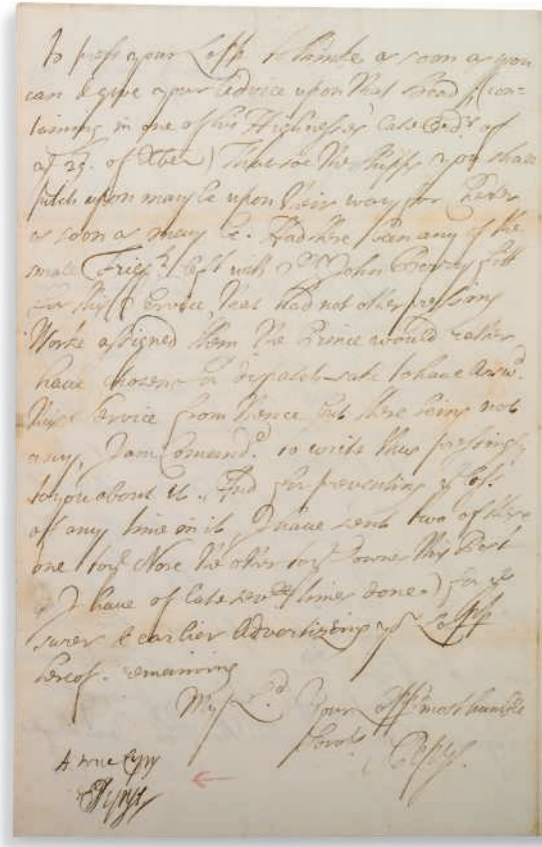 to press your Lopp. to thinke as soon as you
can & give your Advice upon that head, (con-
taining in one of his Highnesses late Ord.rs of
of 29. of Xber) That soe the shipps you shall
pitch upon may be upon their way for
as soon as may be. Had there been any of the
small Frieg.ts left with S.r John fitt
for this Service, that had not other pressing
Worke assigned them the Prince would rather
have chosen for dispatch sake to have Answ.d
this Service from thence but there being not
any, I am Comand.d to write thus pressingly
to you about it. And for preventing y.e
of any time in it, I have sent two of these
one to y.e Nore the other to y.e Downes this Post
I have of late sev.ll times done) for y.e
surer & earlier Advertizing yo.r Lopp
hereof. remaining
My L.d Your Lopps most humble
Serv.t
SPepys.
A true Copy
SPepys